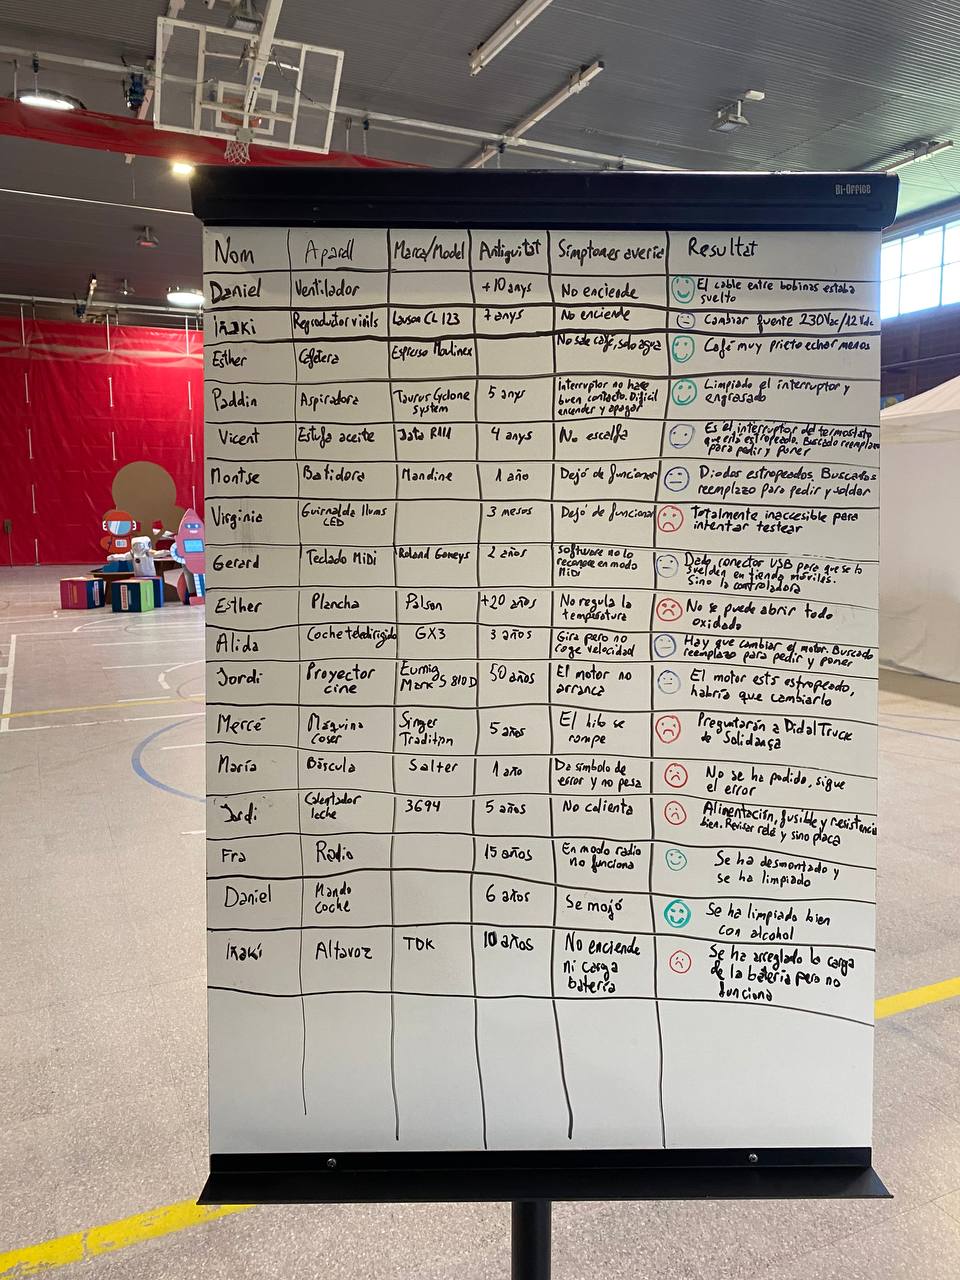 Bi-Office
Nom Aparell Marca/Model Antiguitat Simptomes averia Resultat
Daniel Ventilador +10 anys No enciende El cable entre bobinas estaba
suelto
Iñaki Reproductor vinils Lauson CL 123 7 anys No enciende Cambiar fuente 230Vac/12Vdc
Esther Cafetera Espresso Moulinex No sale café, solo agua Café muy prieto echar menos
Paddin Aspiradora Taurus Cyclone
system 5 anys Interruptor no hace
buen contacto. Dificil
encender y apagar Limpiado el interruptor y
engrasado
Vicent Estufa aceite 4 anys No escalfa Es el interruptor del termostato
que está estropeado. Buscado reemplazo
para pedir y poner
Montse Batidora Mandine 1 año Dejó de funcionar Diodos estropeados. Buscados
reemplazo para pedir y soldar
Virginia Guirnalda llums
LED 3 mesos Dejó de funcionar Totalmente inaccesible para
intentar testear
Gerard Teclado MiDi Roland 2 años Software no lo
reconoce en modo
MiDi Dado conector USB para que se lo
suelden en tienda móviles.
Sino la controladora
Esther Plancha Palson +20 años No regula la
temperatura No se puede abrir todo
oxidado
Alida Coche teledirigido GX3 3 años Gira pero no
coge velocidad Hay que cambiar el motor. Buscado
reemplazo para pedir y poner
Jordi Proyector
cine Eumig
Mark S 810 D 50 años El motor no
arranca El motor está estropeado,
habría que cambiarlo
Mercé Máquina
coser Singer
Tradition 5 años El hilo se
rompe Preguntarán a Didal Truck
de Solidança
María Báscula Salter 1 año Da símbolo de
error y no pesa No se ha podido, sigue
el error
Jordi Calentador
leche 3694 5 años No calienta Alimentación, fusible y resistencia
bien. Revisar relé y sino placa
Fra Radio 15 años En modo radio
no funciona Se ha desmontado y
se ha limpiado
Daniel Mando
coche 6 años Se mojó Se ha limpiado bien
con alcohol
Iñaki Altavoz TDK 10 años No enciende
ni carga
batería Se ha arreglado la carga
de la batería pero no
funciona